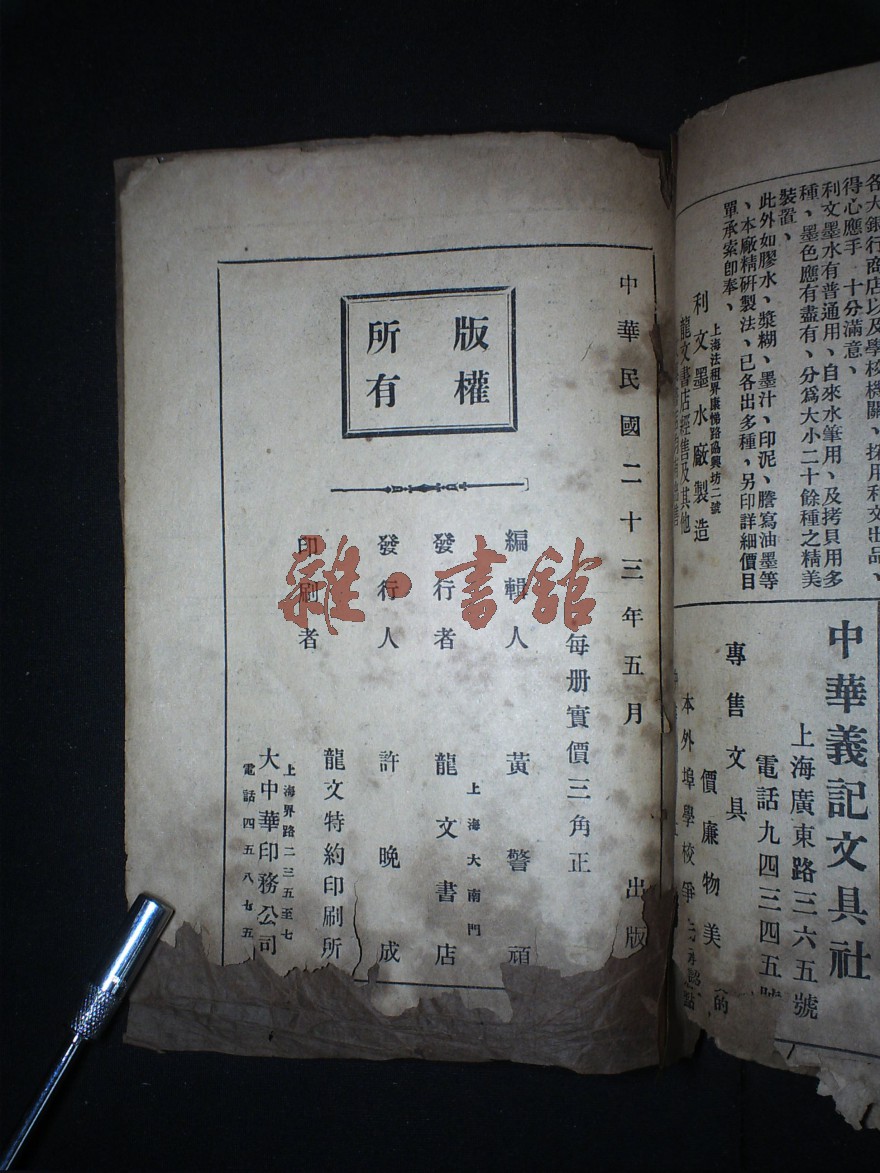 各大銀行商店以及學校機關、採用利文出品、
得心應手 十分滿意、
利文墨水有普通用、自來水筆用、及拷貝用多
種、墨色應有盡有、分爲大小二十餘種之精美
裝置、
此外如膠水、漿糊、墨汁、印泥、謄寫油墨等
、本廠精研製法、已各出多種、另印詳細價目
單承索卽奉、
上海法租界康悌路協興坊二號
利文墨水廠製造
龍文書店經售及其他
中華義記文具社
上海廣東路三六五號
電話九四三四五號
專售文具
價廉物美
本外埠學校爭
中華民國二十三年五月 出版
每册實價三角正
編輯人 黃警頑
上海大南門
發行者 龍文書店
發行人 許晚成
印刷者 龍文特約印刷所
上海界路二三五至七
大中華印務公司
電話四五八七五
版權
所有
雜·書館